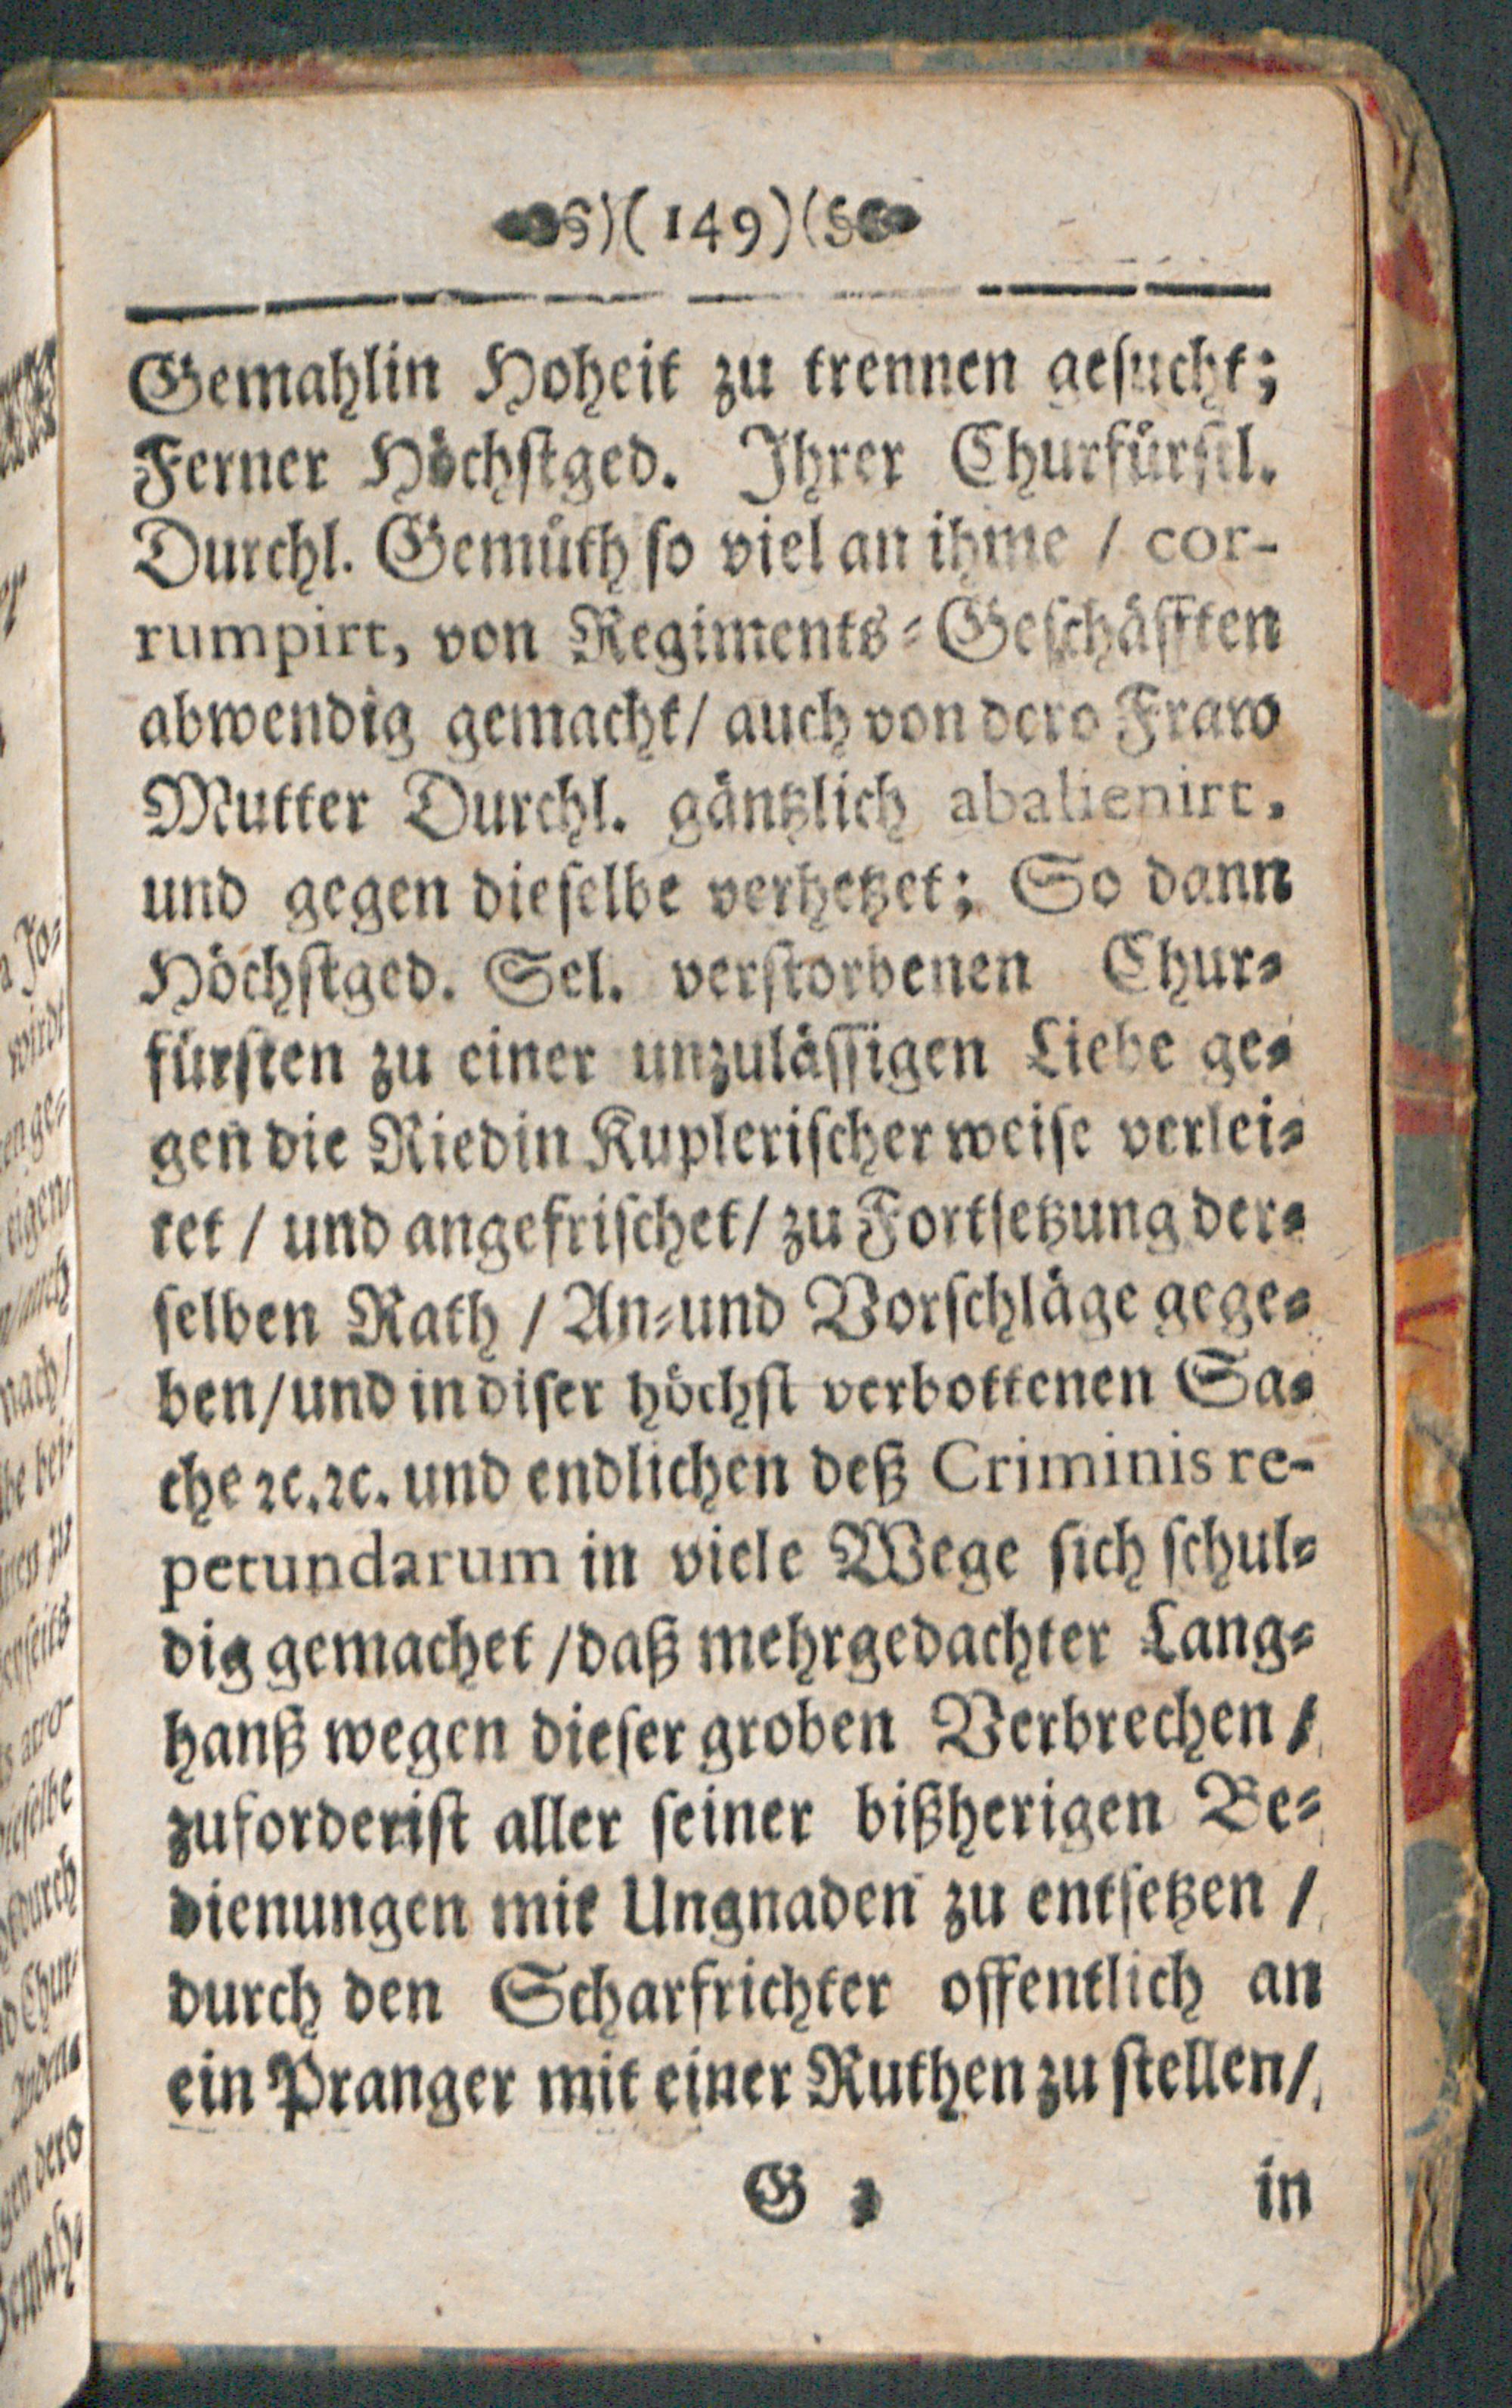 )(149)(
Gemahlin Hoheit zu trennen gesucht;
Ferner Höchstged. Ihrer Churfürstl.
Durchl. Gemüth so viel an ihme / cor-
rumpirt, von Regiments-Geschäfften
abwendig gemacht / auch von dero Fraw
Mutter Durchl. gäntzlich abalienirt,
und gegen dieselbe verhetzet; So dann
Höchstged. Sel. verstorbenen Chur-
fürsten zu einer unzulässigen Liebe ge-
gen die Riedin Kuplerischer weise verlei-
tet / und angefrischet / zu Fortsetzung der-
selben Rath / An- und Vorschläge gege-
ben / und in diser höchst verbottenen Sa-
che ꝛc. ꝛc. und endlichen deß Criminis re-
petundarum in viele Wege sich schul-
dig gemachet / daß mehrgedachter Lang-
hanß wegen dieser groben Verbrechen /
zuforderist aller seiner bißherigen Be-
dienungen mit Ungnaden zu entsetzen /
durch den Scharfrichter offentlich an
ein Pranger mit einer Ruthen zu stellen /
G in